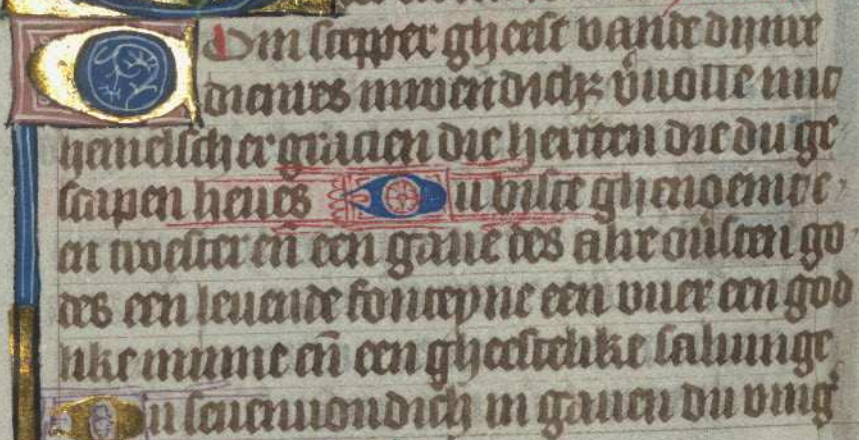 Om scepper gheest vande dijnre
dienres inwendich v̄volle mit
hemelscher gracien die herten die du ge
scapen heues Du biste ghenoemt e
en troester eñ een gaue des alre ouersten go
des een leuende fonteyne een vuer een god
like minne eñ een gheestelike saluinge
Du seuenuondich in gauen du ving